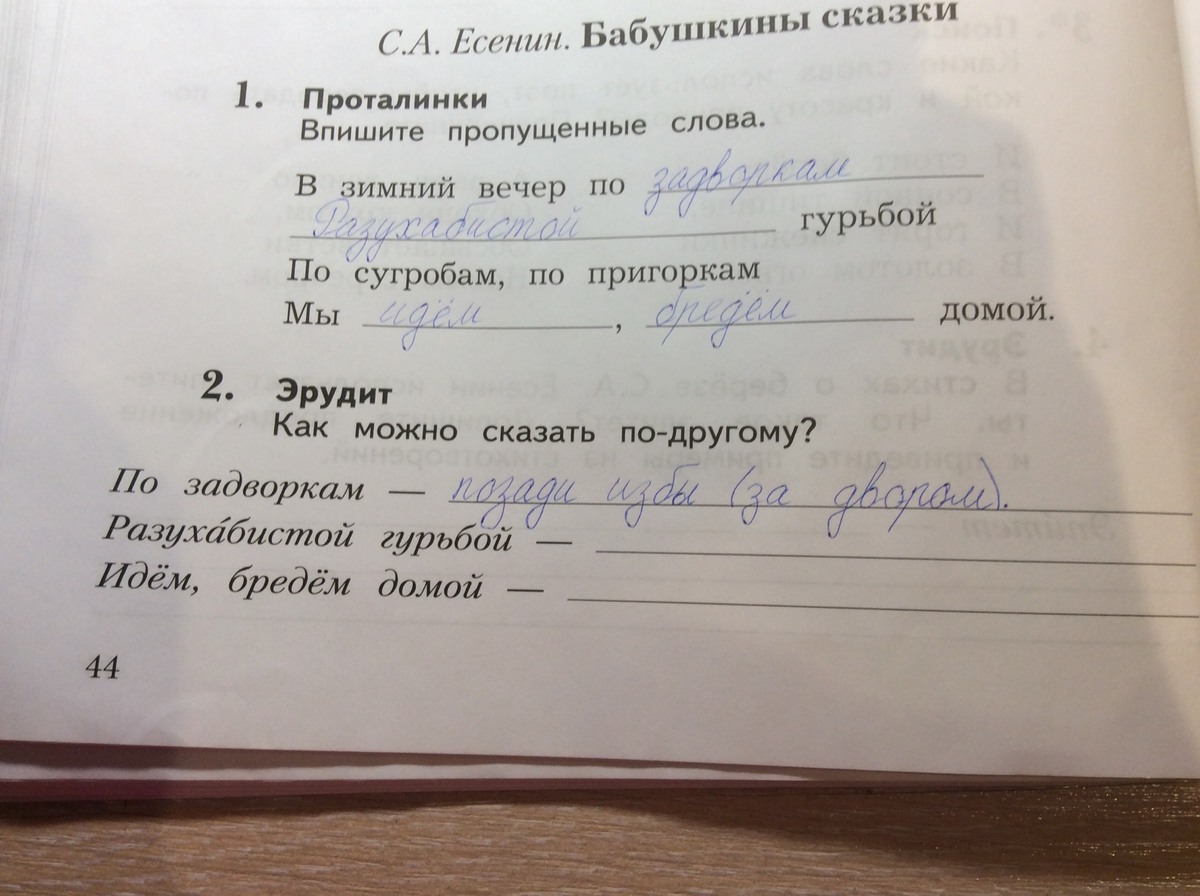 С.А. Есенин. Бабушкины сказки
1. Проталинки
Впишите пропущенные слова.
В зимний вечер по задворкам
Разухабистой гурьбой
По сугробам, по пригоркам
Мы идём, бредём домой.
2. Эрудит
Как можно сказать по-другому?
По задворкам — позади избы (за двором).
Разуха́бистой гурьбой —
Идём, бредём домой —
44